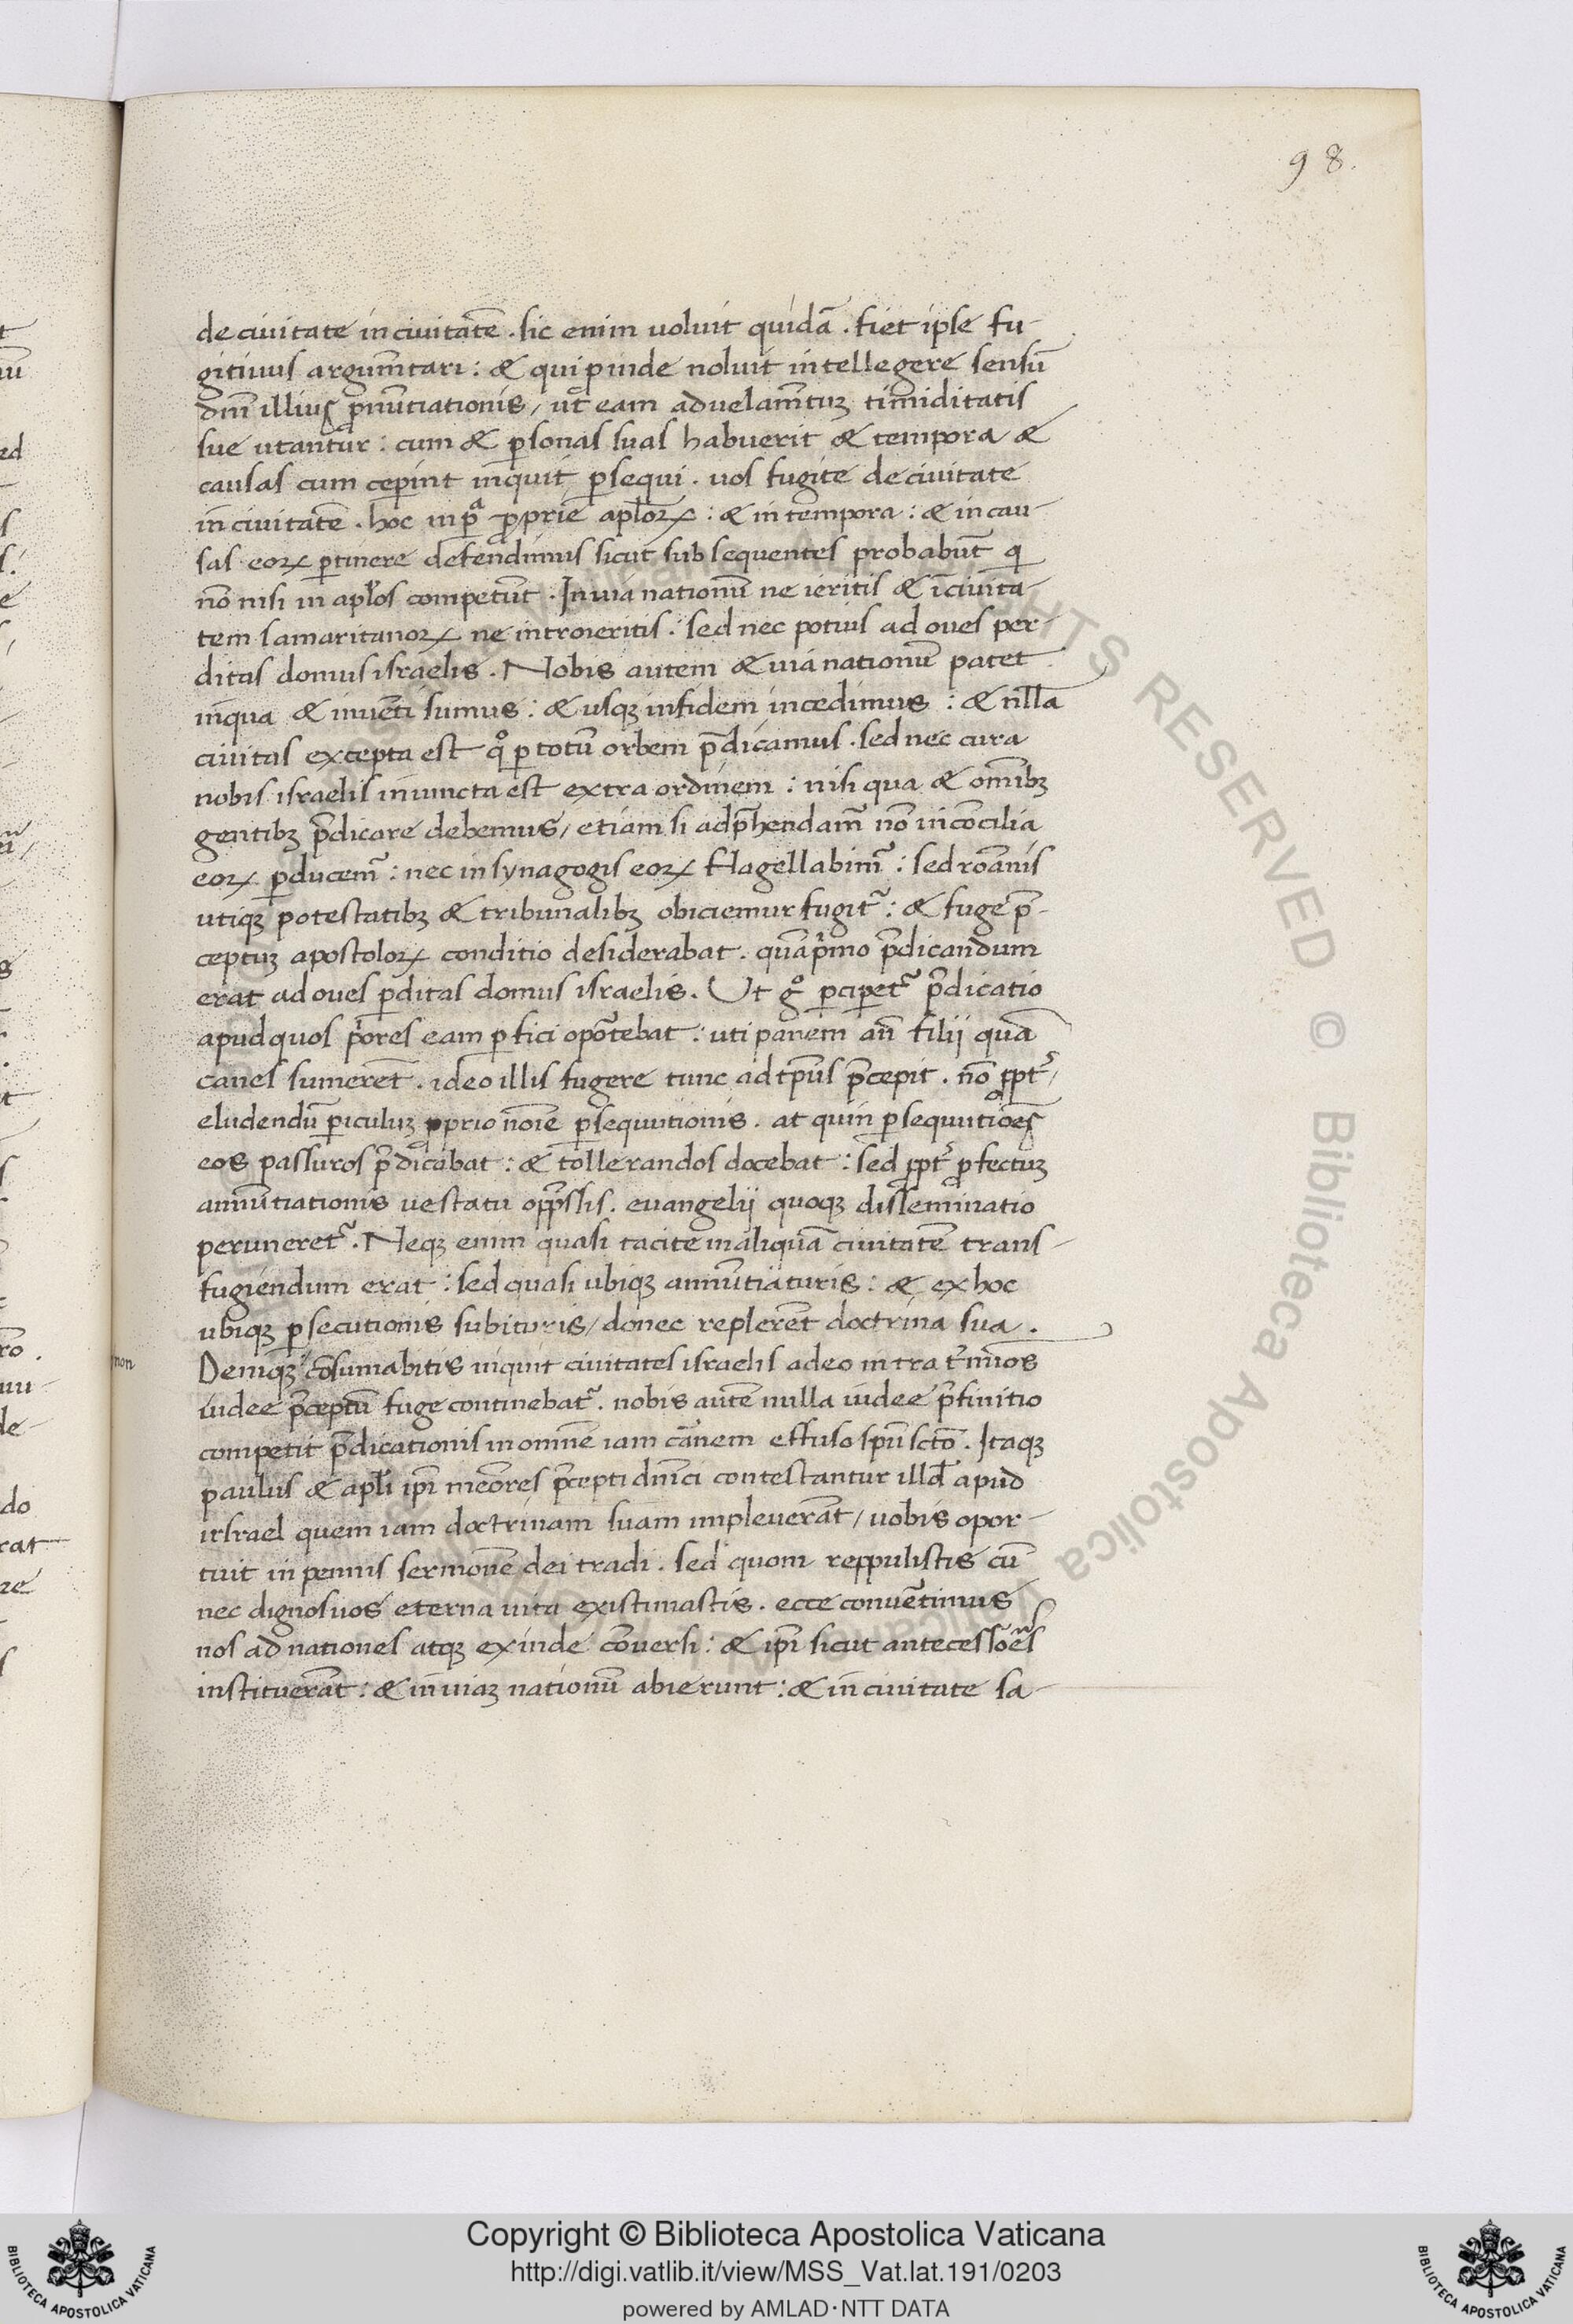 98.
de ciuitate in ciuitatē . sic enim uoluit quidā . fiet ipse fu-
gitiuus argum̄tari : & qui p̱inde noluit intellegere sensū
dn̄i illius p̱nūtiationis / ut eam ad uelam̄tuꝫ timiditatis
sue utantur : cum & p̱sonas suas habuerit & tempora &
causas cum cep̱int inquit p̱sequi . uos fugite de ciuitate
in ciuitatē . hoc in pᵃ ꝓprie apl̄oꝝ : & in tempora : & in cau-
sas eoꝝ p̱tinere defendimus sicut subsequentes probabūt q
nō nisi in apl̄os competūt . In uia nationū ne ieritis & ī ciuita-
tem samaritanoꝝ ne introieritis . sed nec potius ad oues per-
ditas domus israelis . Nobis autem & uia nationū patet
in qua & inuēti sumus : & usqꝫ in fidem incedimus : & nl̄la
ciuitas excepta est qͦ p̱ totū orbem p̄dicamus . sed nec cura
nobis israelis iniuncta est extra ordinem : nisi qua & omībꝫ
gentibꝫ p̄dicare debemus / etiam si adp̄hendam̃ nō in cōcilia
eoꝝ p̱ducem̃ : nec in synagogis eoꝝ flagellabim̃ : sed roānis
utiqꝫ potestatibꝫ & tribunalibꝫ obiciemur fugit̃ : & fuge p̄-
ceptuꝫ apostoloꝝ conditio desiderabat . quāprimo p̄dicandum
erat ad oues p̱ditas domus israelis . Ut gͦ p̱cip̱et̃ p̄dicatio
apud quos p̄ores eam p̱fici opotebat : uti panem an̄ filij quā
canes sumerēt . ideo illis fugere tunc ad tp̄us p̄cepit . nō ꝓpt̃
eludendū p̱iculuꝫ ꝓprio noīe p̱sequutionis . at quin p̱sequutiōes
eos passuros p̄dicabat : & tollerandos docebat : sed ꝓpt̃ ꝓfectuꝫ
annūtiationis ue statu opp̄ssis . euangelij quoqꝫ disseminatio
peruneret̃ . Neqꝫ enim quasi tacite in aliquā ciuitatē trans-
fugiendum erat : sed quasi ubiqꝫ annūtiaturis : & ex hoc
ubiqꝫ p̱secutionis subituris / donec replerēt doctrina sua .
non
Deniqꝫ cōsumabitis inquit ciuitates israelis adeo intra t̃m̄ios
iudee p̄ceptū fuge continebat̃ . nobis autē nulla iudee p̄finitio
competit p̄dicationis in omnē iam cānem effuso spū sctō . Itaqꝫ
paulus & apl̄i ip̄i meōres p̄cepti dn̄ici contestantur illd̄ apud
irsrael quem iam doctrinam suam impleuerāt / uobis opor-
tuit in pennis sermonē dei tradi . sed quom reppulistis cū
nec dignos uos eterna uita existimastis . ecce conuētimus
nos ad nationes atqꝫ exinde cōuersi : & ip̄i sicut antecessōes
instituerāt : & in uiaꝫ nationū abierunt : & in ciuitate sa-
Copyright © Biblioteca Apostolica Vaticana
http://digi.vatlib.it/view/MSS_Vat.lat.191/0203
powered by AMLAD·NTT DATA